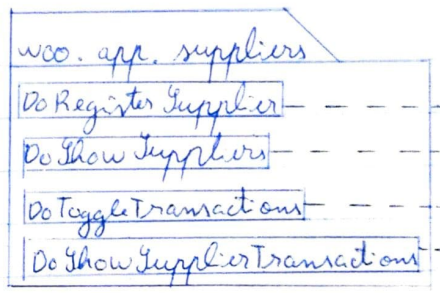 woo.app.suppliers
DoRegisterSupplier
DoShowSuppliers
DoToggleTransactions
DoShowSupplierTransactions